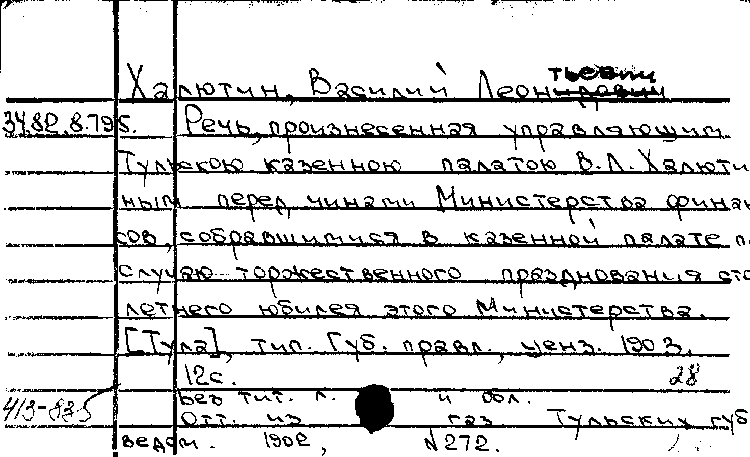 Халютин, Василий Леонтьевич
34.82.8.795. Речь, произнесенная управляющим
Тульскою казенною палатою В.Л. Халюти
ным перед чинами Министерства финан
сов, собравшимися в казенной палате п
случаю торжественного празднования сто
летнего юбилея этого Министерства.
[Тула], тип. Губ. правл., ценз. 1903.
12с. 28
Без тит. л. и обл.
413-825 Отт. из газ. Тульских губ
ведом. 1902, N 272.